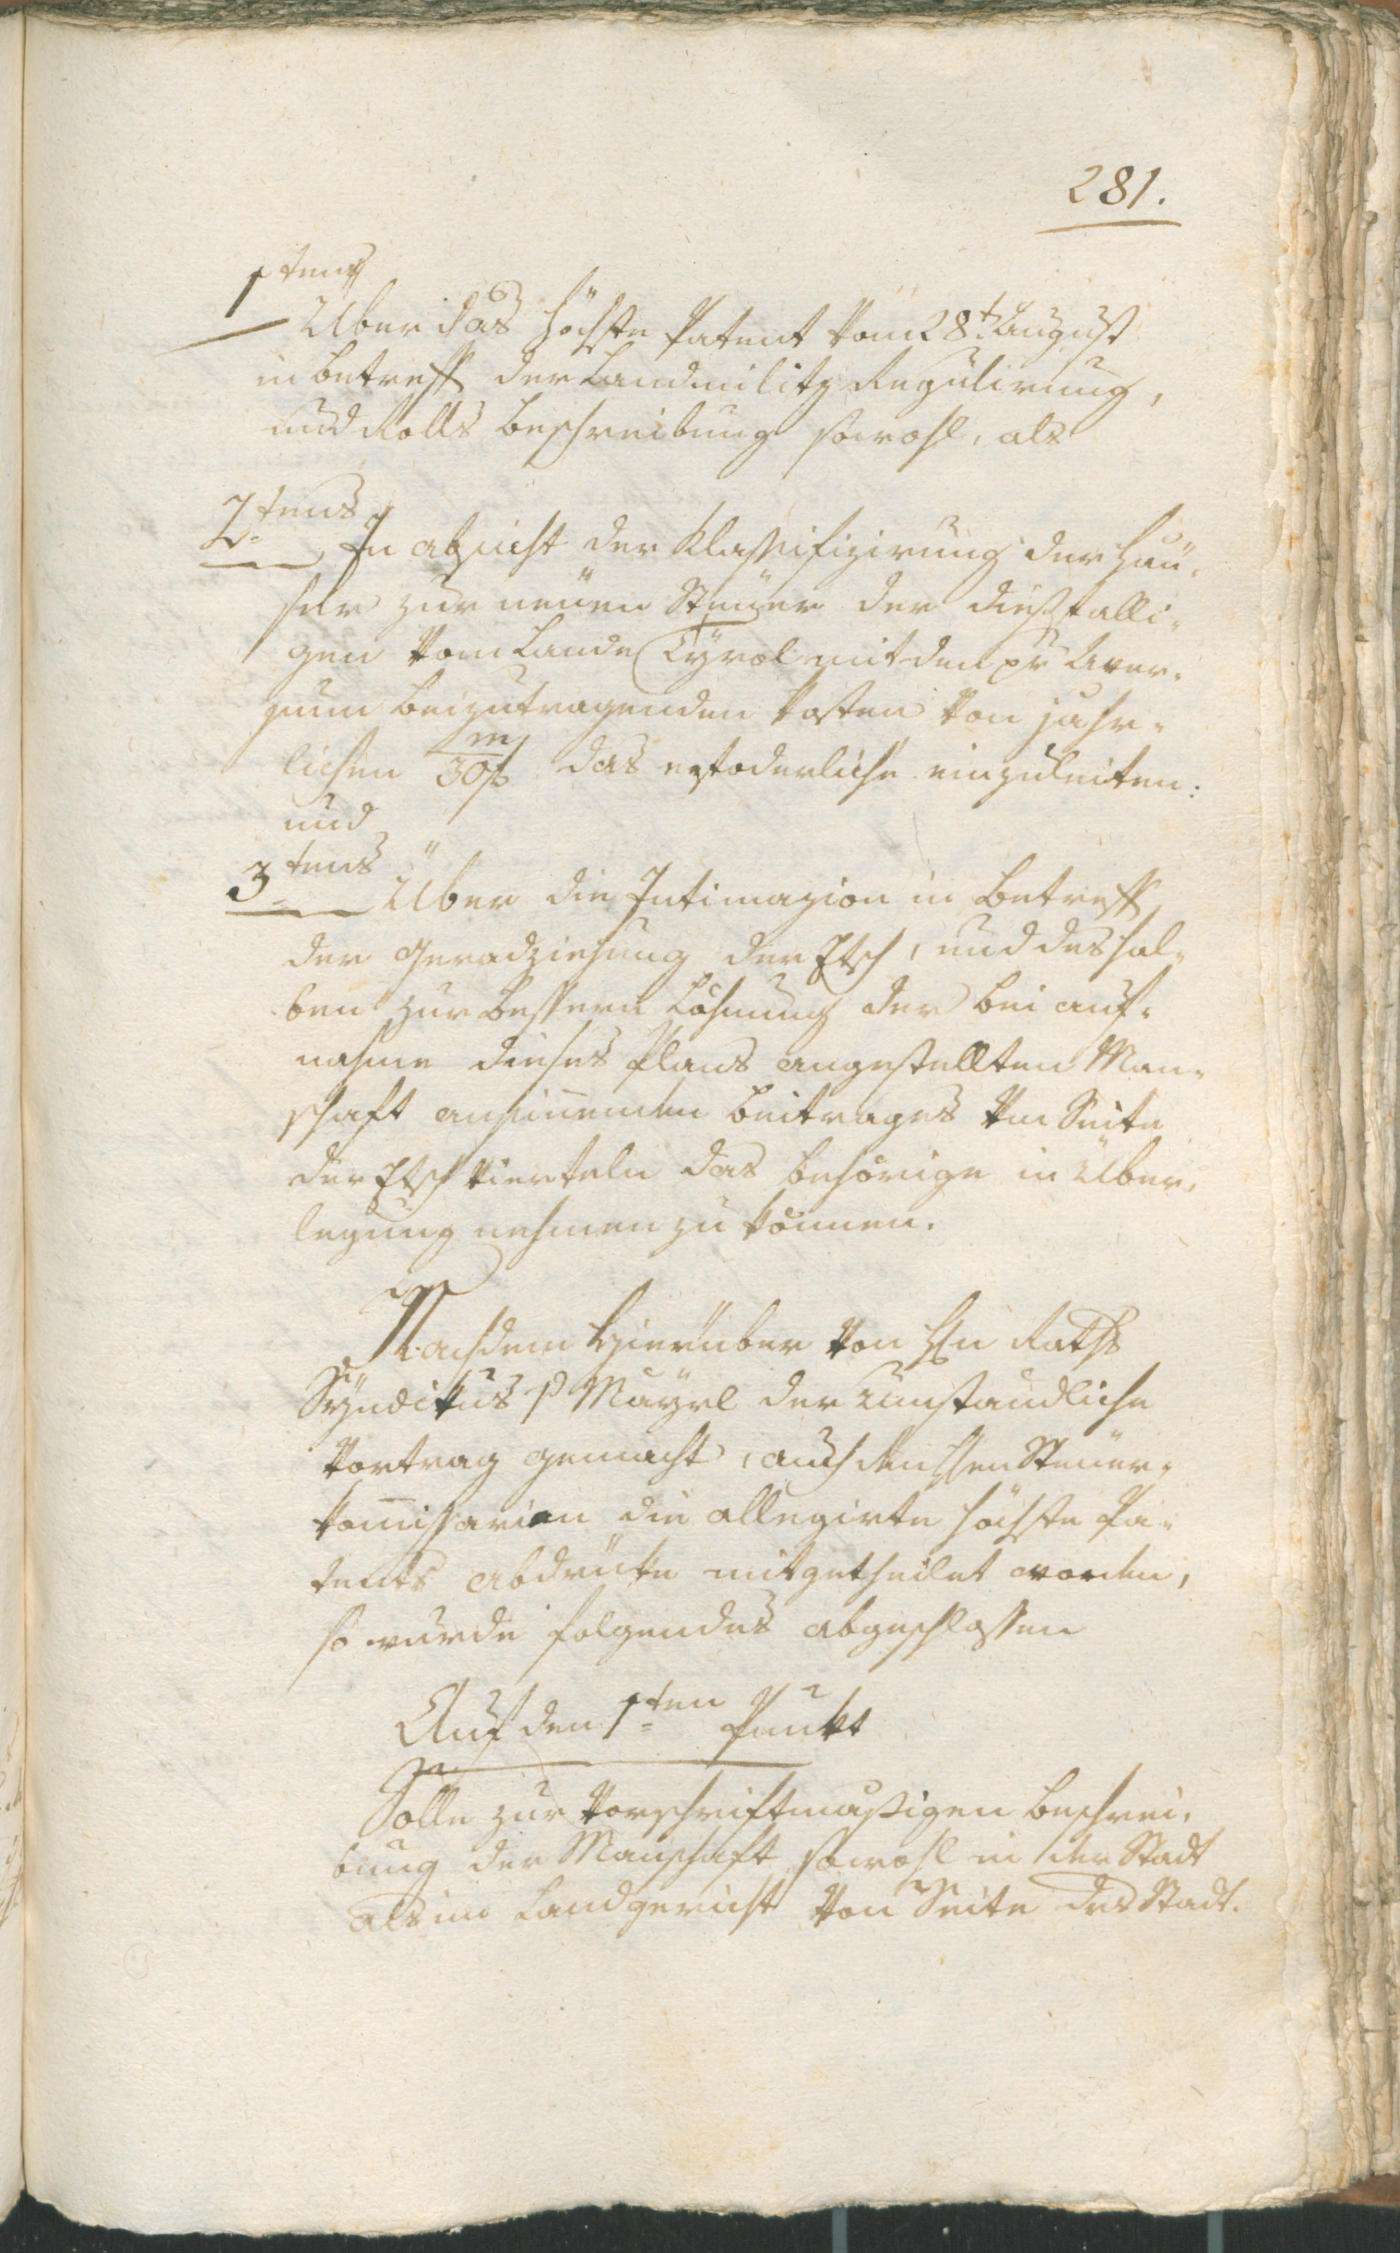 281.
1tens
Über das höchste Patent vom 28t August
in betreff der Landmilitz Regulirung,
und Rolls beschreibung sowohl, als
2tens
In absicht der Klassifizirung der Häu¬
ser zur neuen Steuer der diesfalli¬
gen vom Lande Tÿrol mit den pr Aver¬
sum beizutragenden kosten von jahr¬
lichen 30/m f das erfoderliche einzuleiten:
und
3tens
Über die Intimazion in betreff
der Geradziehung der Etsch, und deshal¬
ben zur bessern Löhnung der bei auf¬
nahme dieses Plans angestellten Man¬
schaft ansinnenden beitrages von Seite
der Etschvierteln das behörige in Über¬
legung nehmen zu können.
Nachdem hierüber von Hln Raths
Sÿndikus v Maÿrl der umstandliche
Vortrag gemacht, auch den Hhen Steuer¬
kommissarien die allegirte höchste Pa¬
tents abdrücke mitgetheilet worden,
so wurde folgendes abgeschlossen
Auf den 1ten Punkt
Solle zur vorschriftmaßigen beschrei¬
bung der Manschaft sowohl in der Stadt
als im Landgericht von Seite des Stadt¬